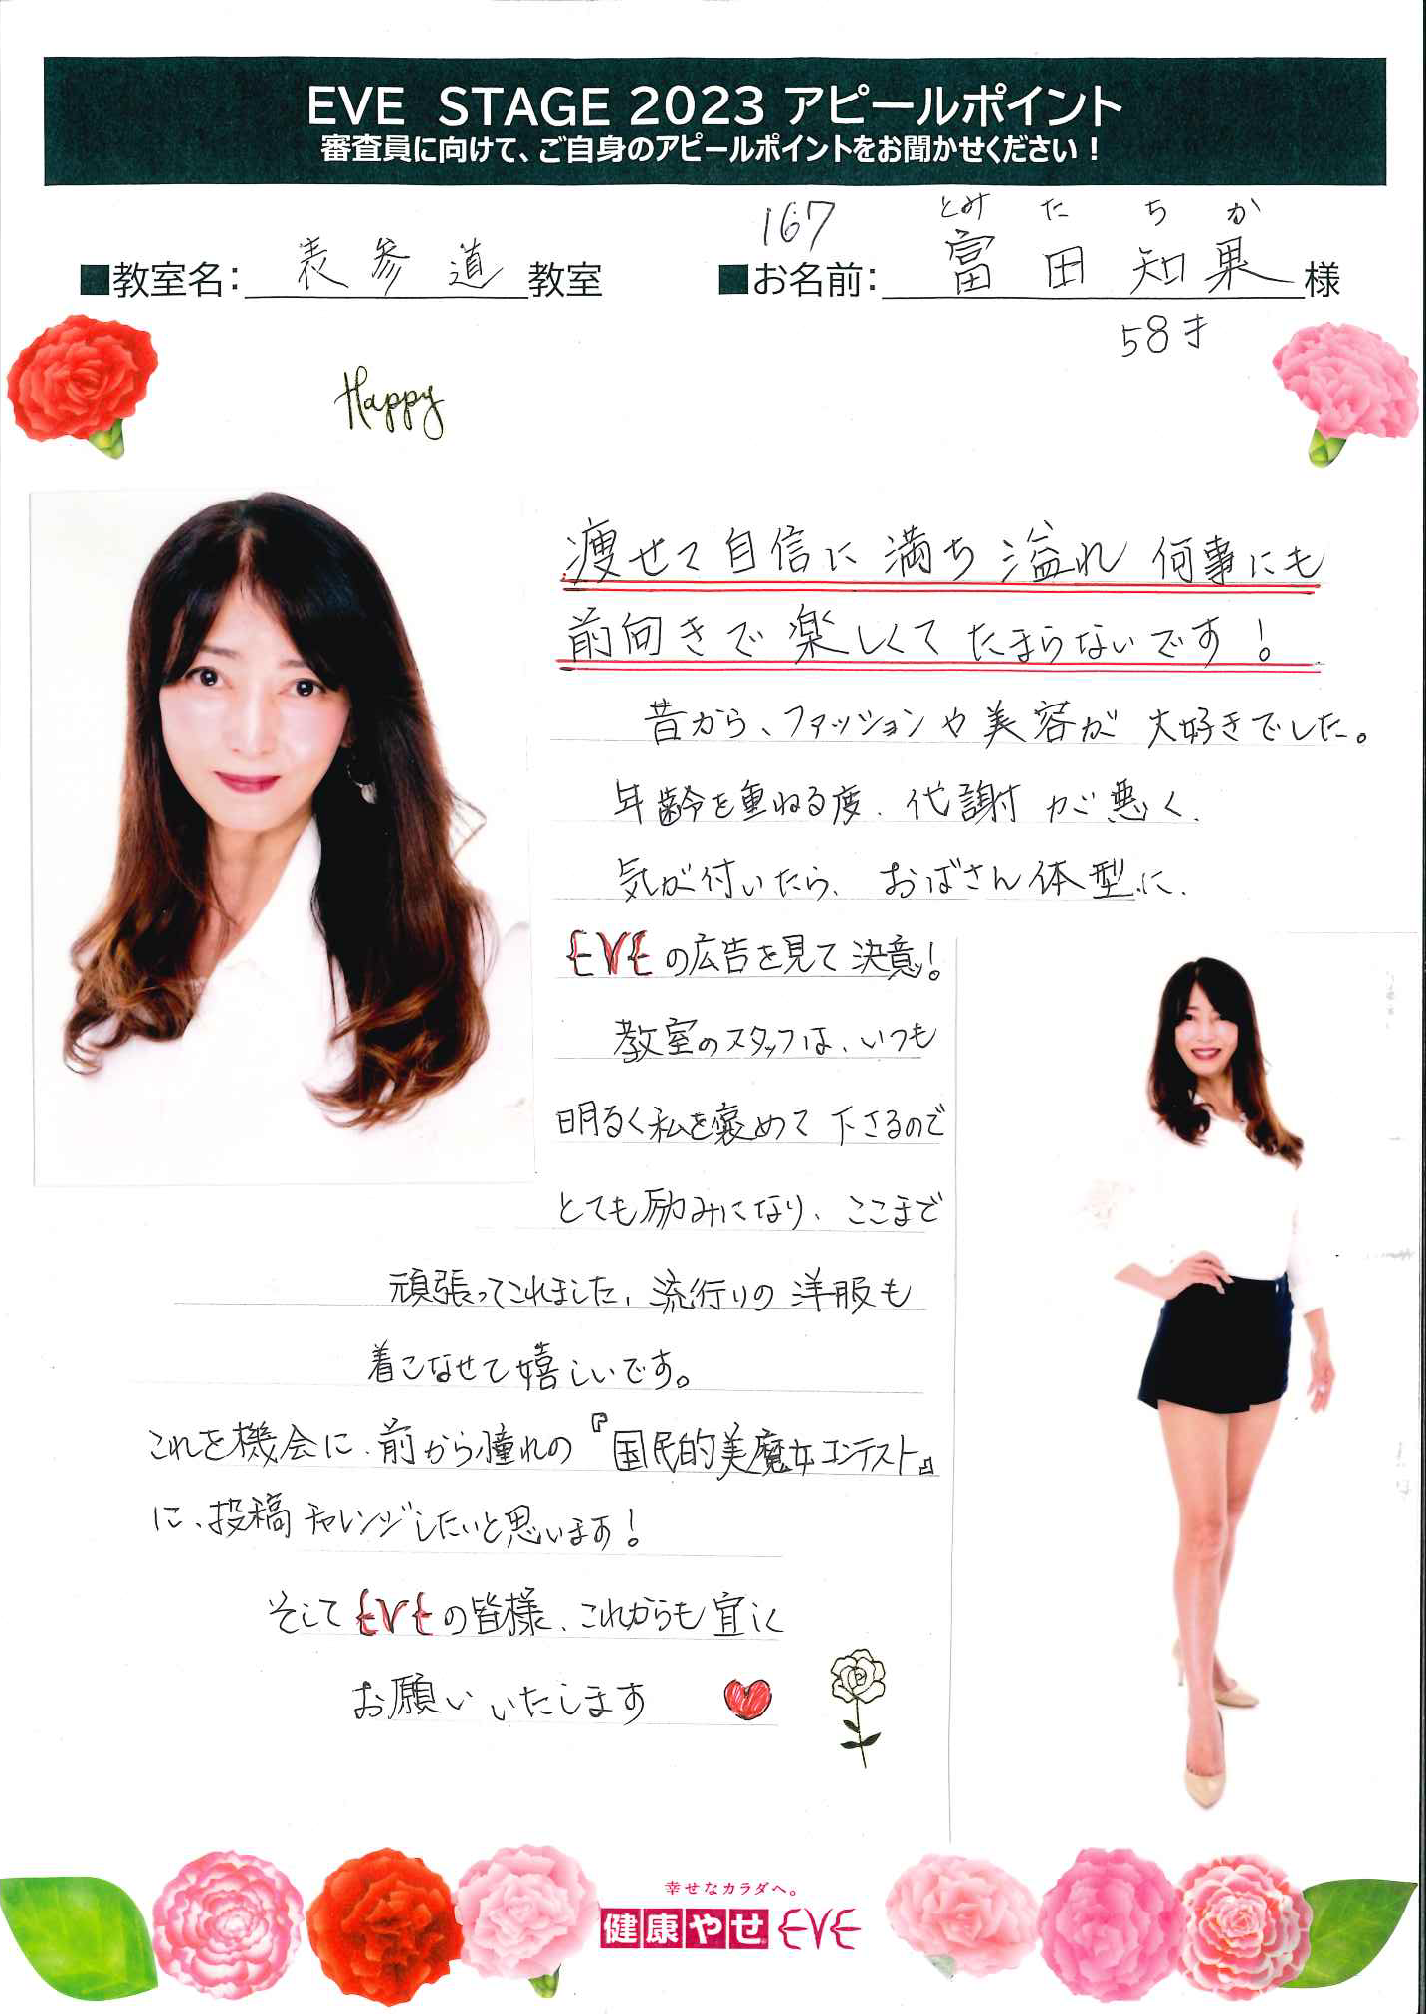 EVE STAGE 2023 アピールポイント
審査員に向けて、ご自身のアピールポイントをお聞かせください！
167
とみ た ち か
■教室名：表参道教室
■お名前：富田知果様
58才
Happy
痩せて自信に満ち溢れ何事にも
前向きで楽しくてたまらないです！
昔から、ファッションや美容が大好きでした。
年齢を重ねる度、代謝が悪く、
気が付いたら、おばさん体型に、
EVEの広告を見て決意！
教室のスタッフは、いつも
明るく私を褒めて下さるので
とても励みになり、ここまで
頑張ってこれました、流行りの洋服も
着こなせて嬉しいです。
これを機会に、前から憧れの『国民的美魔女コンテスト』
に、投稿チャレンジしたいと思います！
そしてEVEの皆様、これからも宜しく
お願いいたします
幸せなカラダへ。
健康やせ EVE